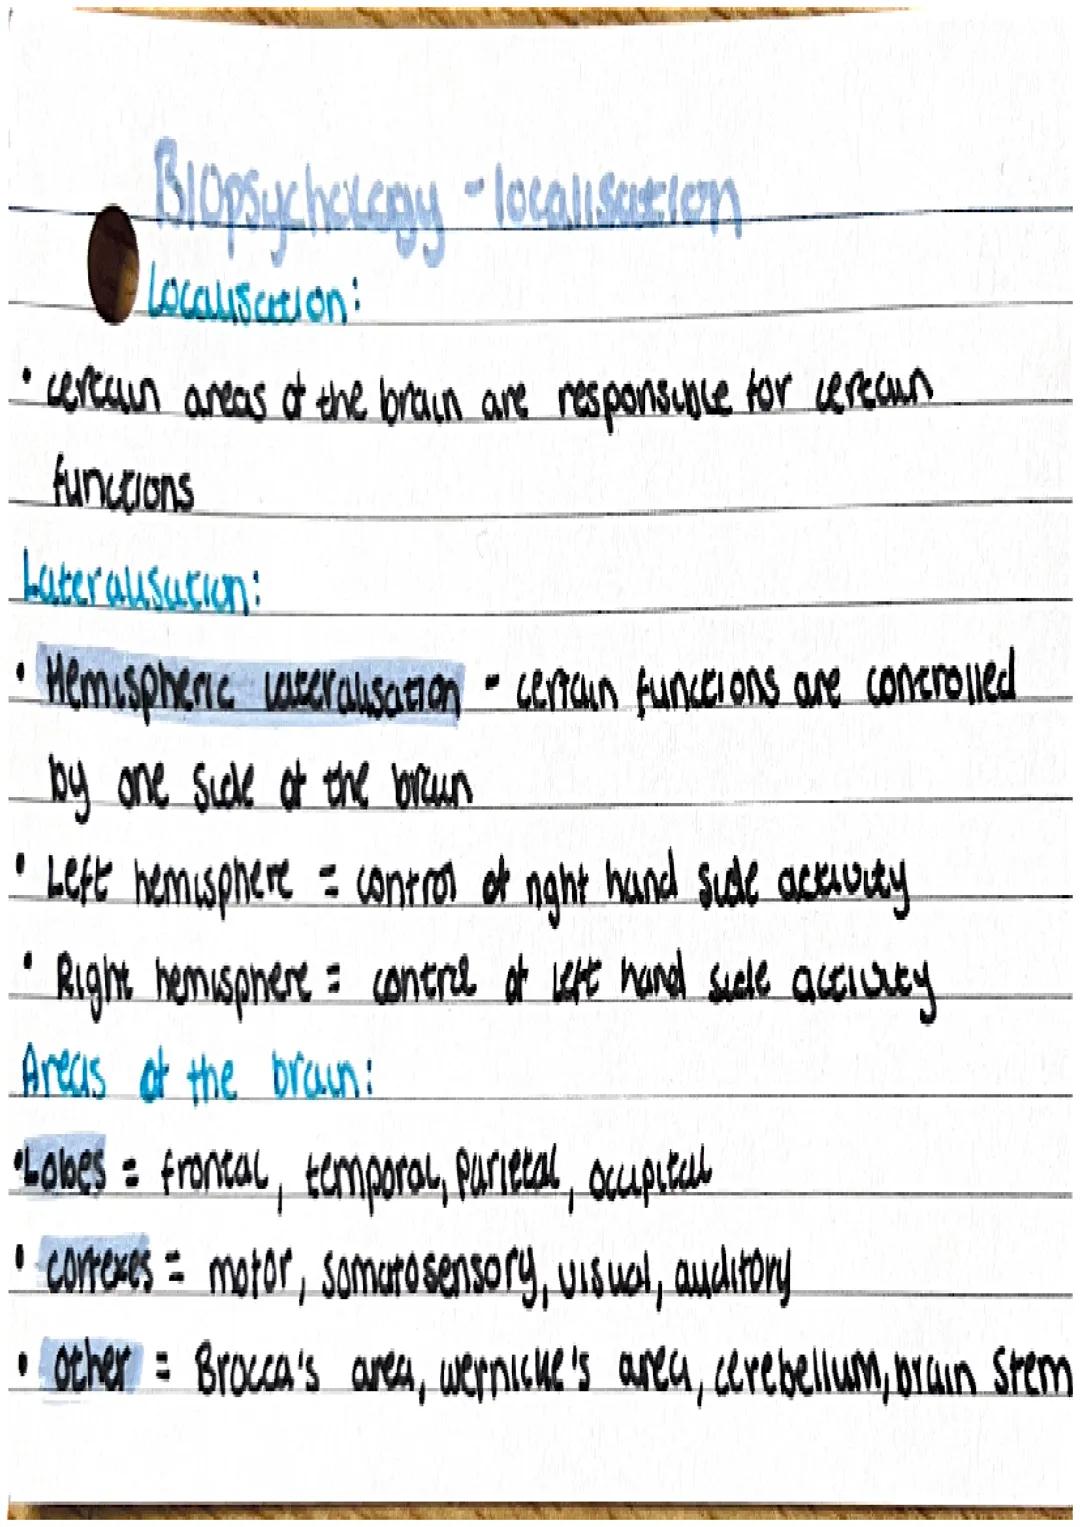 Biopsychology - localisation
Localisation:
• certain areas of the brain are responsible for certain
functions
Lateralisation:
• Hemispheric lateralisation - certain functions are controlled
by one side of the brain
• Left hemisphere = control of right hand side activity
• Right hemisphere = control of left hand side activity
Areas of the brain:
• Lobes = frontal, temporal, parietal, occupital
• cortexes = motor, somatosensory, visual, auditory
• other = Brocca's area, wernicke's area, cerebellum, brain stem